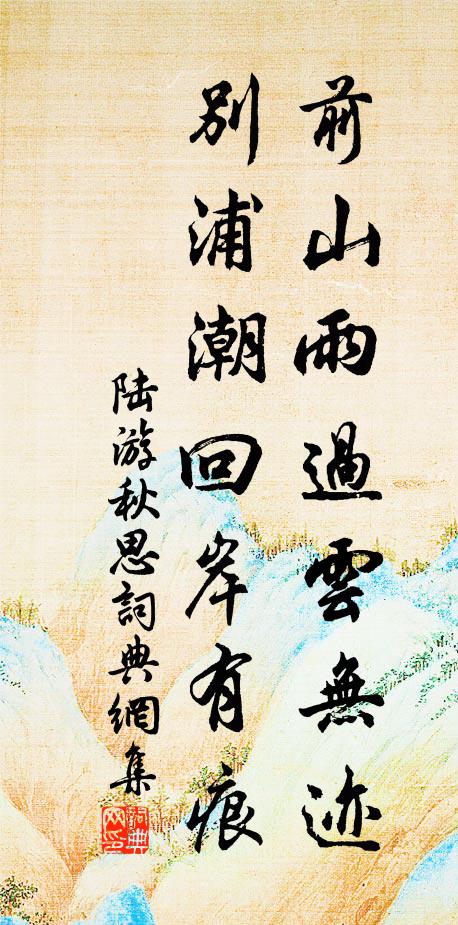 前山雨過雲無迹
別浦潮回岸有痕
陆游秋思詞典網集
詞典